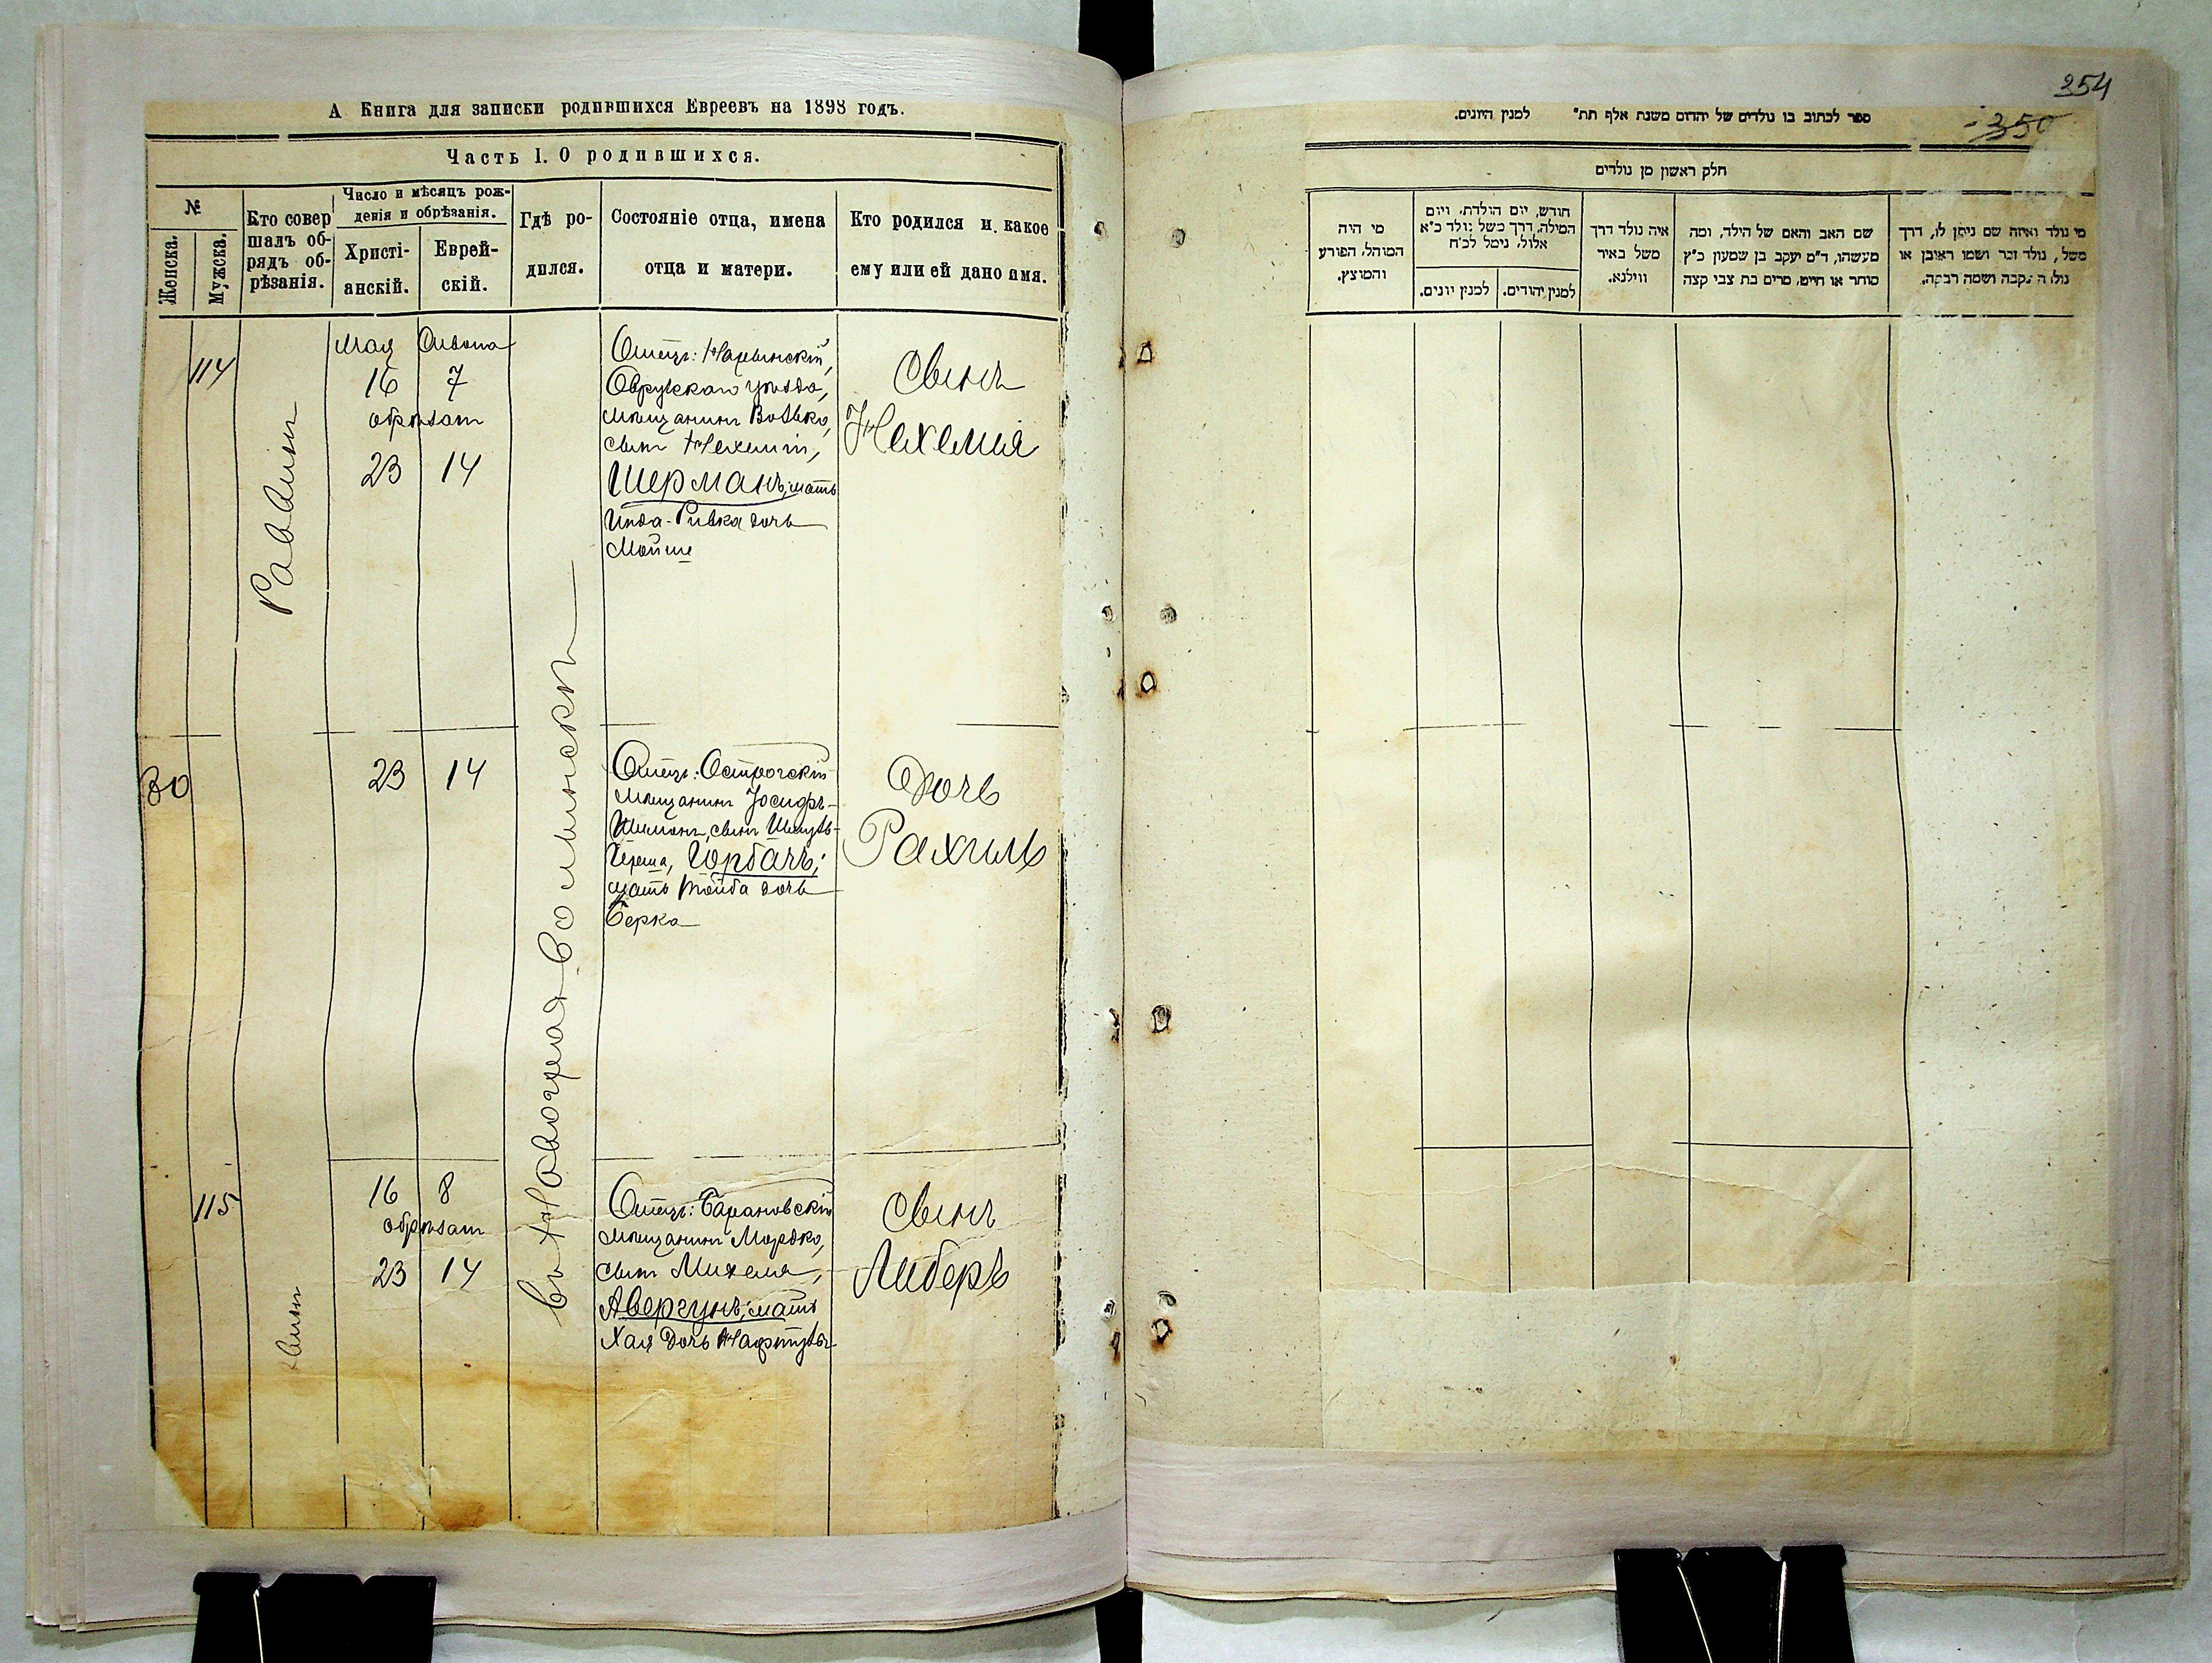 А Книга для записки родившихся Евреевъ на 1898 годъ.
Часть I. О родившихся.
№
Женска.
Мужска.
Кто совер
шалъ об-
рядъ об-
рѣзанія.
Число и мѣсяцъ рож-
денія и обрѣзанія.
Христі-
анскій.
Еврей-
скій.
Гдѣ ро-
дился.
Состояніе отца, имена
отца и матери.
Кто родился и какое
ему или ей дано имя.
114
Раввинъ
Мая Сивона
16 7
обрѣзанъ
23 14
въ Новоград-Волынскѣ
Отецъ:
Овручскаго уѣзда,
мѣщанинъ Волько,
сынъ Нехеміи,
Шерманъ; мать
Инда-Ривка дочь
Мойше
Сынъ
Нехемія
30
23 14
Отецъ: Острогскій
мѣщанинъ Іосифъ-
Шимонъ, сынъ Шмуль-
Герша, Горбачъ;
мать Тойба дочь
Берка
Дочь
Рахиль
115
16 8
обрѣзанъ
23 14
Отецъ: Барановскій
мѣщанинъ Мордко,
сынъ Михеля,
Авергунъ; мать
Хая дочь Нафтулы
Сынъ
Либеръ
354
350
ספר לכתוב בו נולדים של יהדום משנת אלף תת" למנין היונים.
חלק ראשון מן נולדים
מי היה
המוהל, הפורע
והמוצץ.
חודש, יום הולדת, ויום
המילה, דרך משל נולד כ"א
אלול, נימל לכ"ח
למנין יונים.
למנין יהודים.
איה נולד דרך
משל באיר
ווילנא.
שם האב והאם של הילד, ומה
מעשהו, ד"מ יעקב בן שמעון כ"ץ
סוחר או חייט, מרים בת צבי קצה
מי נולד ואיזה שם ניתן לו, דרך
משל, נולד זכר ושמו ראובן או
נולדה נקבה ושמה רבקה.